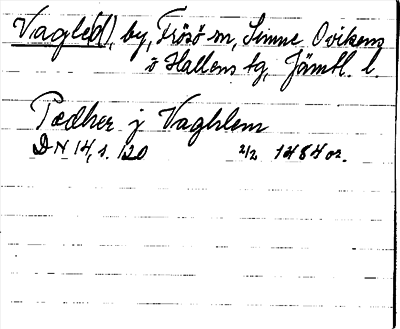 Vagle(d), by, Frösö m, Sunne Ovikens
o Hallens tg, Jämtl. l.
Pædher j Vaghlem
DN 14, s. 120 2/2 1484 or.